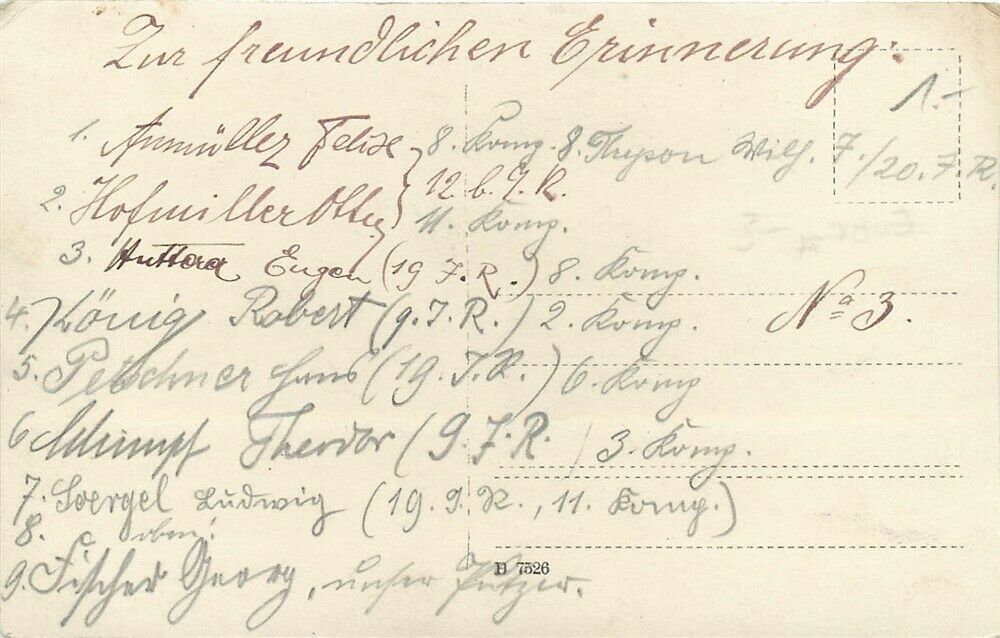 Zur freundlichen Erinnerung:
1.-
1. Annmüller Felix 8. Komp. 8. Thyson Wilh. 7./20. J. R.
12. b. J. R.
2. Hofmiller Otto 11. Komp.
3. Huttera Eugen (19 J. R.) 8. Komp.
4. König Robert (9. J. R.) 2. Komp.
Na 3.
5. Petschner Hans (19. J. R.) 6. Komp
6 Schimpf Theodor (9. J. R. ) 3. Komp.
7. Soergel Ludwig (19. J. R., 11. Komp.)
8. oben!
9. Fischer Georg, unser Putzer.
B 7526